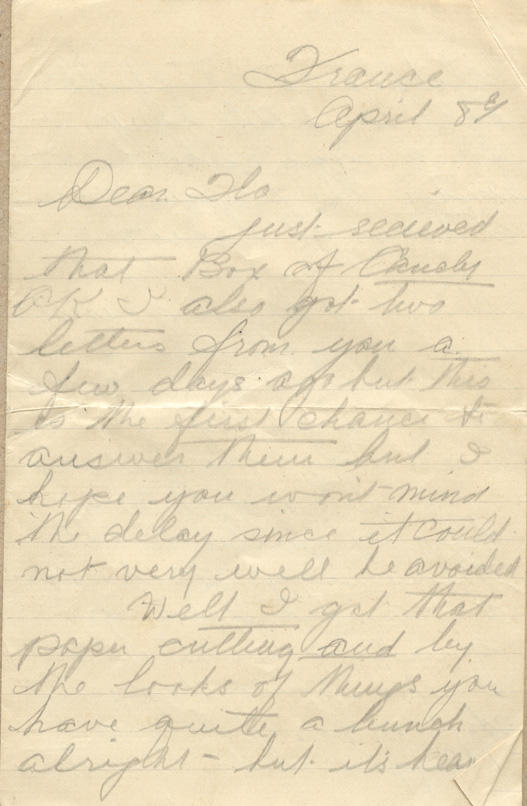 France
April 8th
Dear Flo
just recieved
that Box of Candy
OK I also got two
letters from you a
few days ago but this
is the first chance to
answer them but I
hope you won't mind
the delay since it could
not very well be avoided
Well I got that
paper cutting and by
the looks of things you
have quite a bunch
alright - but it's